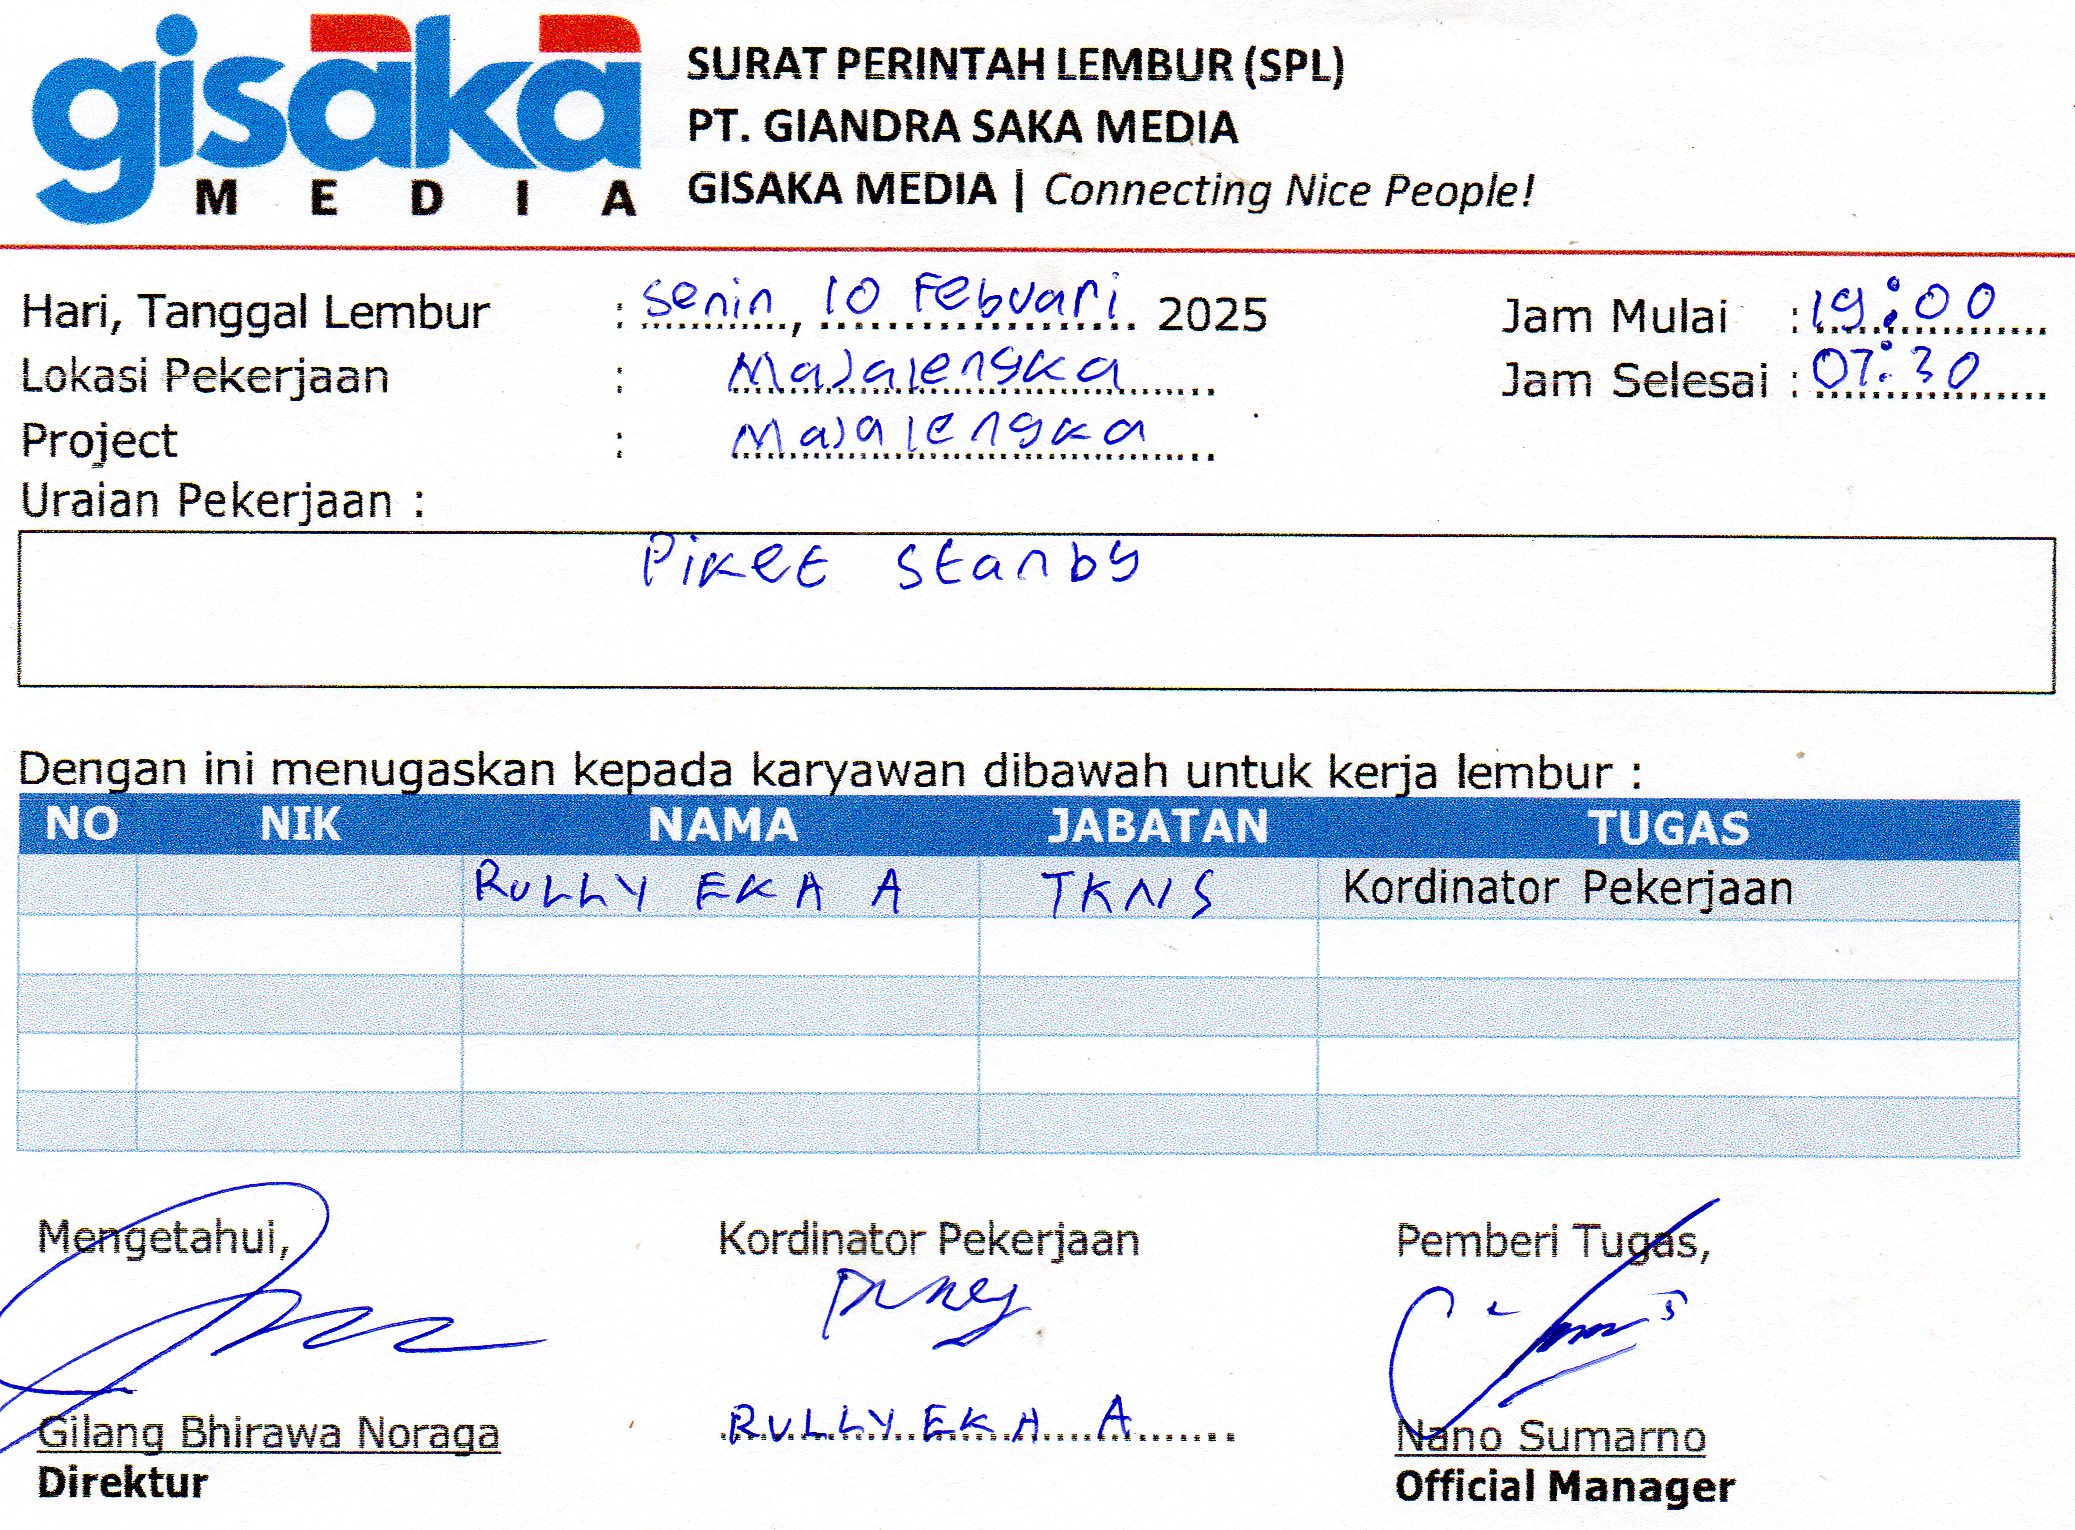 gisaka
MEDIA
SURAT PERINTAH LEMBUR (SPL)
PT. GIANDRA SAKA MEDIA
GISAKA MEDIA | Connecting Nice People!
Hari, Tanggal Lembur : Senin, 10 Febuari 2025 Jam Mulai : 19:00
Lokasi Pekerjaan : Majalengka Jam Selesai : 07:30
Project : Majalengka
Uraian Pekerjaan :
Piket Stanby
Dengan ini menugaskan kepada karyawan dibawah untuk kerja lembur :
NO NIK NAMA JABATAN TUGAS
RULLY EKA A TKNS Kordinator Pekerjaan
Mengetahui, Kordinator Pekerjaan Pemberi Tugas,
Gilang Bhirawa Noraga RULLY EKA A Nano Sumarno
Direktur Official Manager